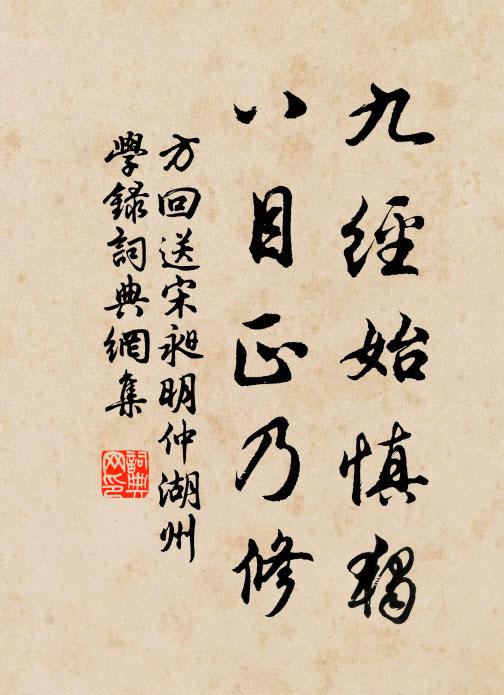 九經始慎獨
八目正乃修
方回送宋昶明仲湖州
學錄詞典網集
詞典網印